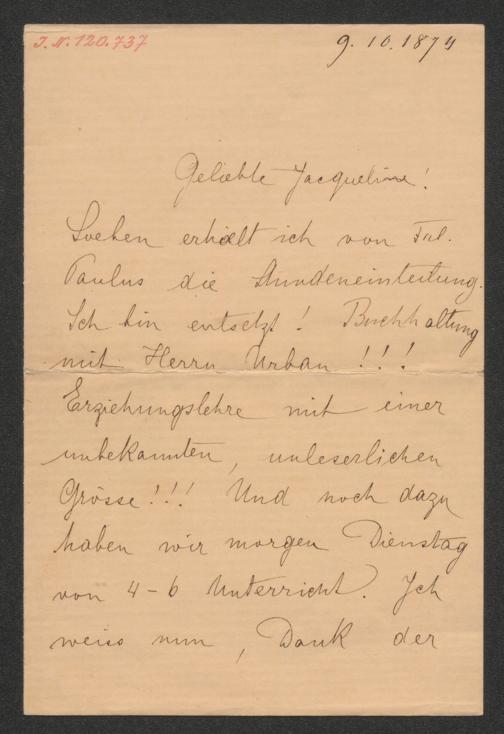 J. N. 120.737
9. 10. 1874
Geliebte Jacqueline!
Soeben erhielt ich von Frl.
Paulus die Stundeneinteilung.
Ich bin entsetzt! Buchhaltung
mit Herrn Urban!!!
Erziehungslehre mit einer
unbekannten, unleserlichen
Grösse!!! Und noch dazu
haben wir morgen Dienstag
von 4-6 Unterricht. Ich
weiss nun, Dank der